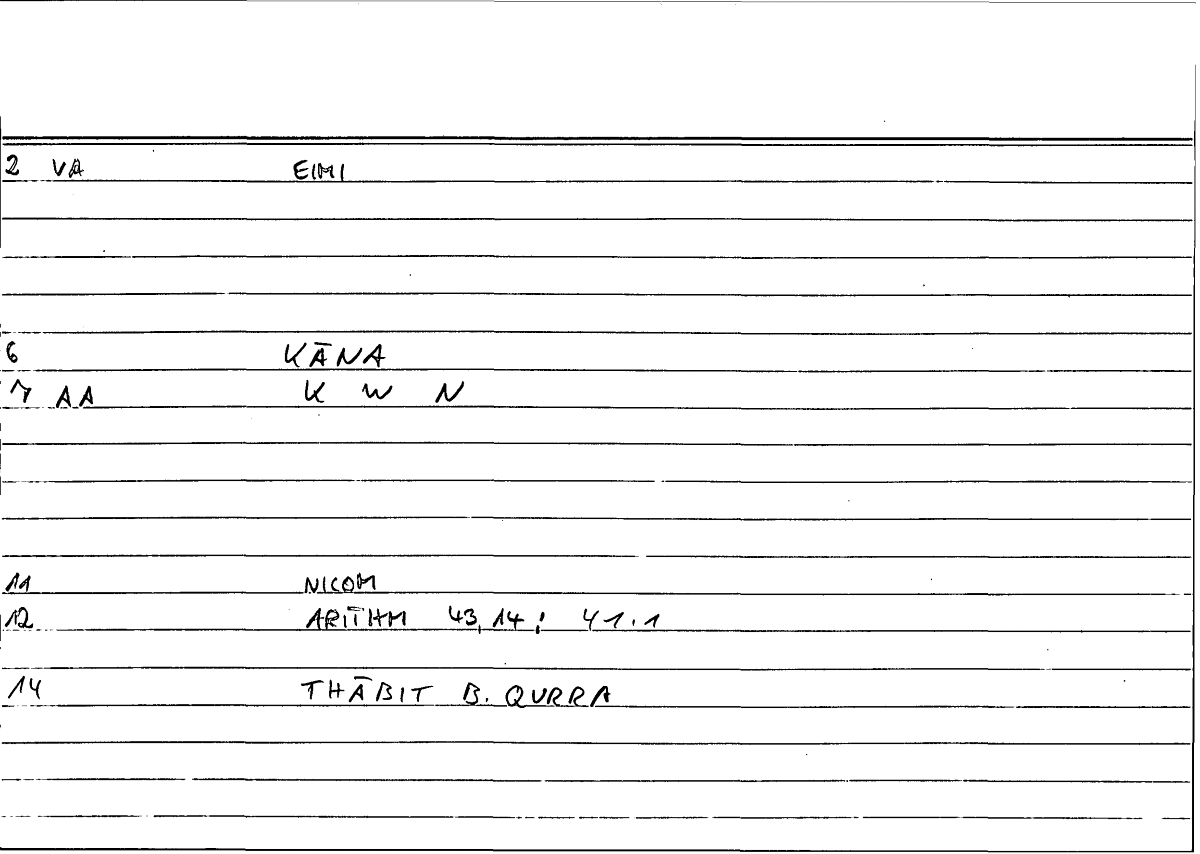 2 VA EIMI
6 KĀNA
7 AA K W N
11 NICOM
12 ARITHM 43,14 : 41.1
14 THĀBIT B. QURRA